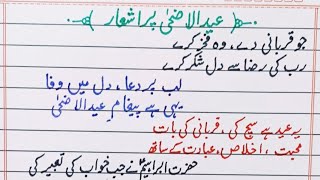 عیدالاضحیٰ پر اشعار
جو قربانی دے، وہ فخر کرے
رب کی رضا سے دل شکر کرے
لب پر دعا، دل میں وفا
یہی ہے پیغامِ عیدالاضحیٰ
یہ عید ہے سچ کی، قربانی کی بات
محبت، اخلاص، عبادت کے ساتھ
حضرت ابراہیمؑ نے جب خواب کی تعبیر کی